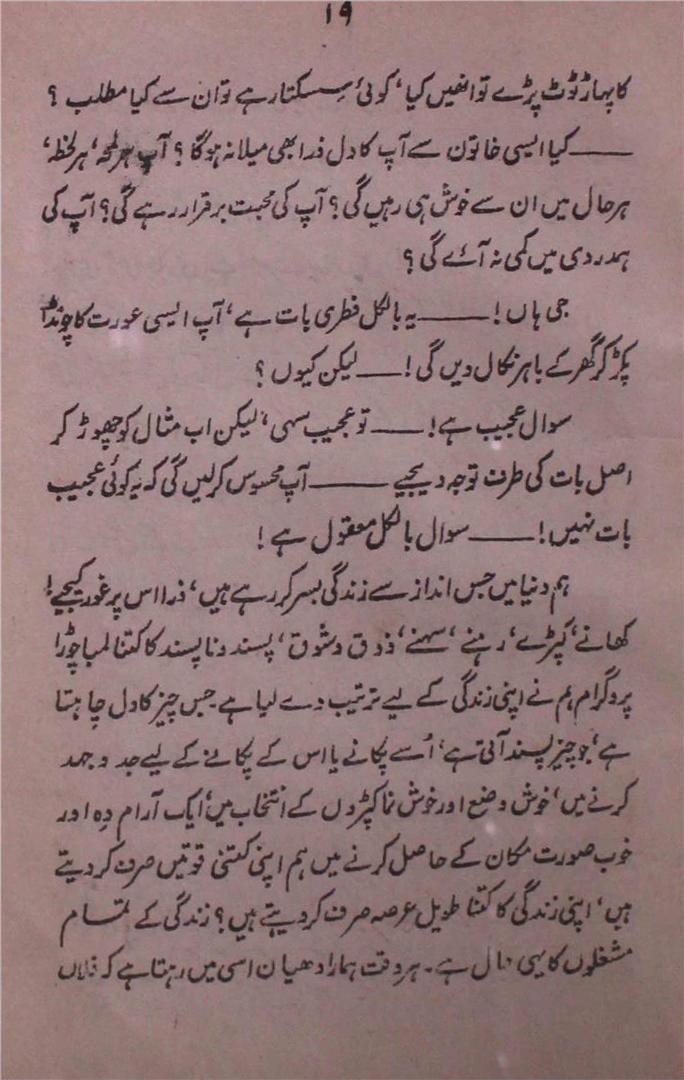 ۱۹
کا پہاڑ ٹوٹ پڑے تو انھیں کیا، کوئی سسکتا رہے تو ان سے کیا مطلب ؟
——کیا ایسی خاتون سے آپ کا دل ذرا بھی میلا نہ ہوگا ؟ آپ ہر لمحہ، ہر لحظہ،
ہر حال میں ان سے خوش ہی رہیں گی ؟ آپ کی محبت برقرار رہے گی؟ آپ کی
ہمدردی میں کمی نہ آئے گی ؟
جی ہاں !——یہ بالکل فطری بات ہے، آپ ایسی عورت کا چونڈا
پکڑ کر گھر کے باہر نکال دیں گی !——لیکن کیوں ؟
سوال عجیب ہے !——تو عجیب سہی، لیکن اب مثال کو چھوڑ کر
اصل بات کی طرف توجہ دیجیے——آپ محسوس کرلیں گی کہ یہ کوئی عجیب
بات نہیں !——سوال بالکل معقول ہے !
ہم دنیا میں جس انداز سے زندگی بسر کر رہے ہیں، ذرا اس پر غور کیجیے !
کھانے، کپڑے، رہنے، سہنے، ذوق و شوق، پسند و ناپسند کا کتنا لمبا چوڑا
پروگرام ہم نے اپنی زندگی کے لیے ترتیب دے لیا ہے جس چیز کا دل چاہتا
ہے، جو چیز پسند آتی ہے، اُسے پکانے یا اس کے پکانے کے لیے جد و جہد
کرنے میں، خوش وضع اور خوش نما کپڑوں کے انتخاب میں، ایک آرام دہ اور
خوب صورت مکان کے حاصل کرنے میں ہم اپنی کتنی قوتیں صرف کر دیتے
ہیں، اپنی زندگی کا کتنا طویل عرصہ صرف کر دیتے ہیں ؟ زندگی کے تمام
مشغلوں کا یہی حال ہے۔ ہر وقت ہمارا دھیان اسی میں رہتا ہے کہ فلاں